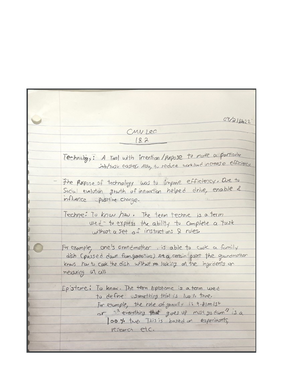 CMN 200
1 & 2
Technology: A tool with intention/Purpose to make a particular
to reduce workload increase efficiency
- The Purpose of Technology was to improve efficiency. Due to
Social evolution growth of innovation helped drive, enable &
influence positive change.
Techne: To know/how. The term techne is a term
used to express the ability to complete a task
without a set of instructions & rules
For example, one's grandmother is able to cook a family
dish (passed down from generations) at a certain point the grandmother
knows how to cook the dish without looking at the ingredients or
reading at all.
Episteme: To know. The term episteme is a term used
to define something that is such true.
For example, the rate of gravity is 9.8m/s²
or "everything that goes up must go down" is a
100% true. This is based on experiments,
research etc.